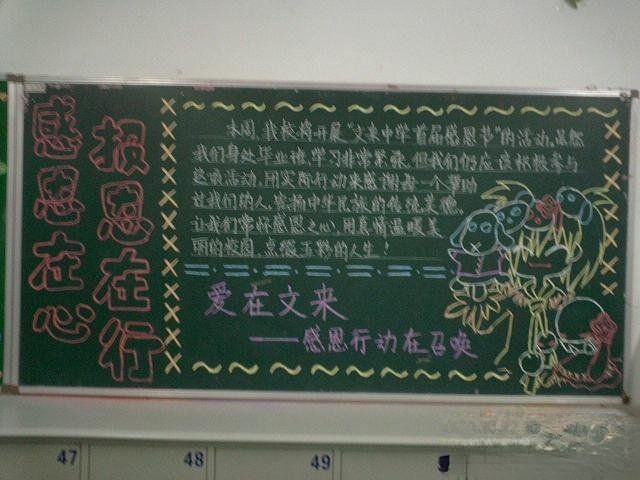 感恩在心
报恩在行
本周,我校将开展“文来中学首届感恩节”的活动,虽然
我们身处毕业班,学习非常紧张,但我们仍应该积极参与
这项活动,用实际行动来感谢每一个帮助
过我们的人,弘扬中华民族的传统美德,
让我们常怀感恩之心,用真情温暖美
丽的校园,点缀五彩的人生!
爱在文来
——感恩行动在召唤
47
48
49